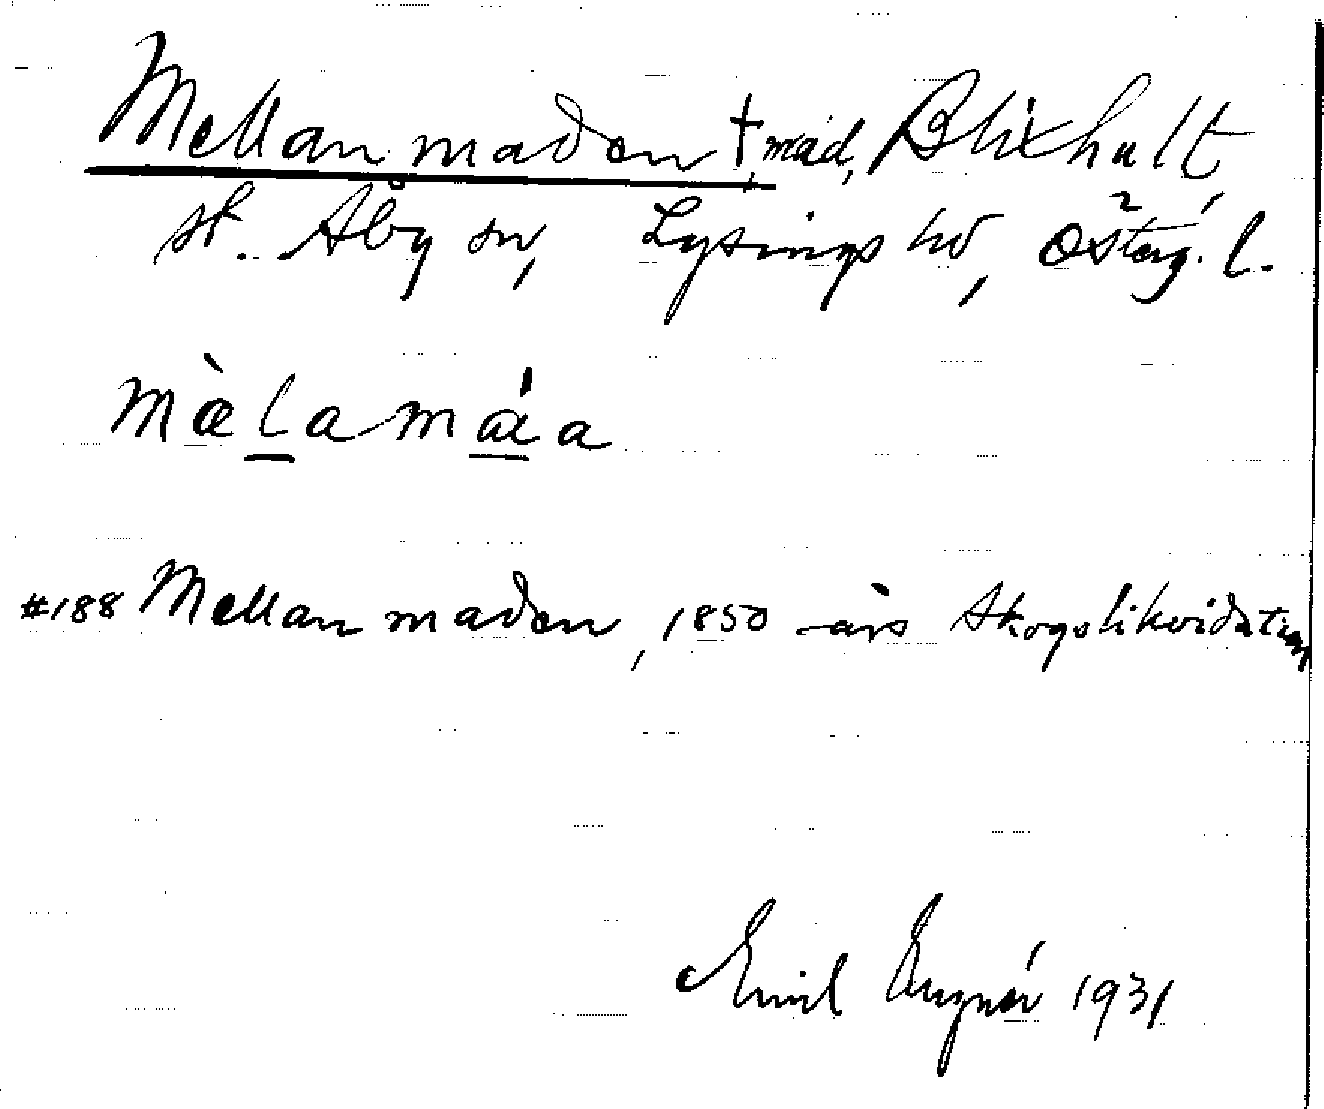 Mellanmaden †, mad, Blixhult,
st. Åby sn, Lysings hd, Österg. l.
mæ̀lamáa
#188 Mellanmaden, 1850 års skogslikvidation
Emil 1931